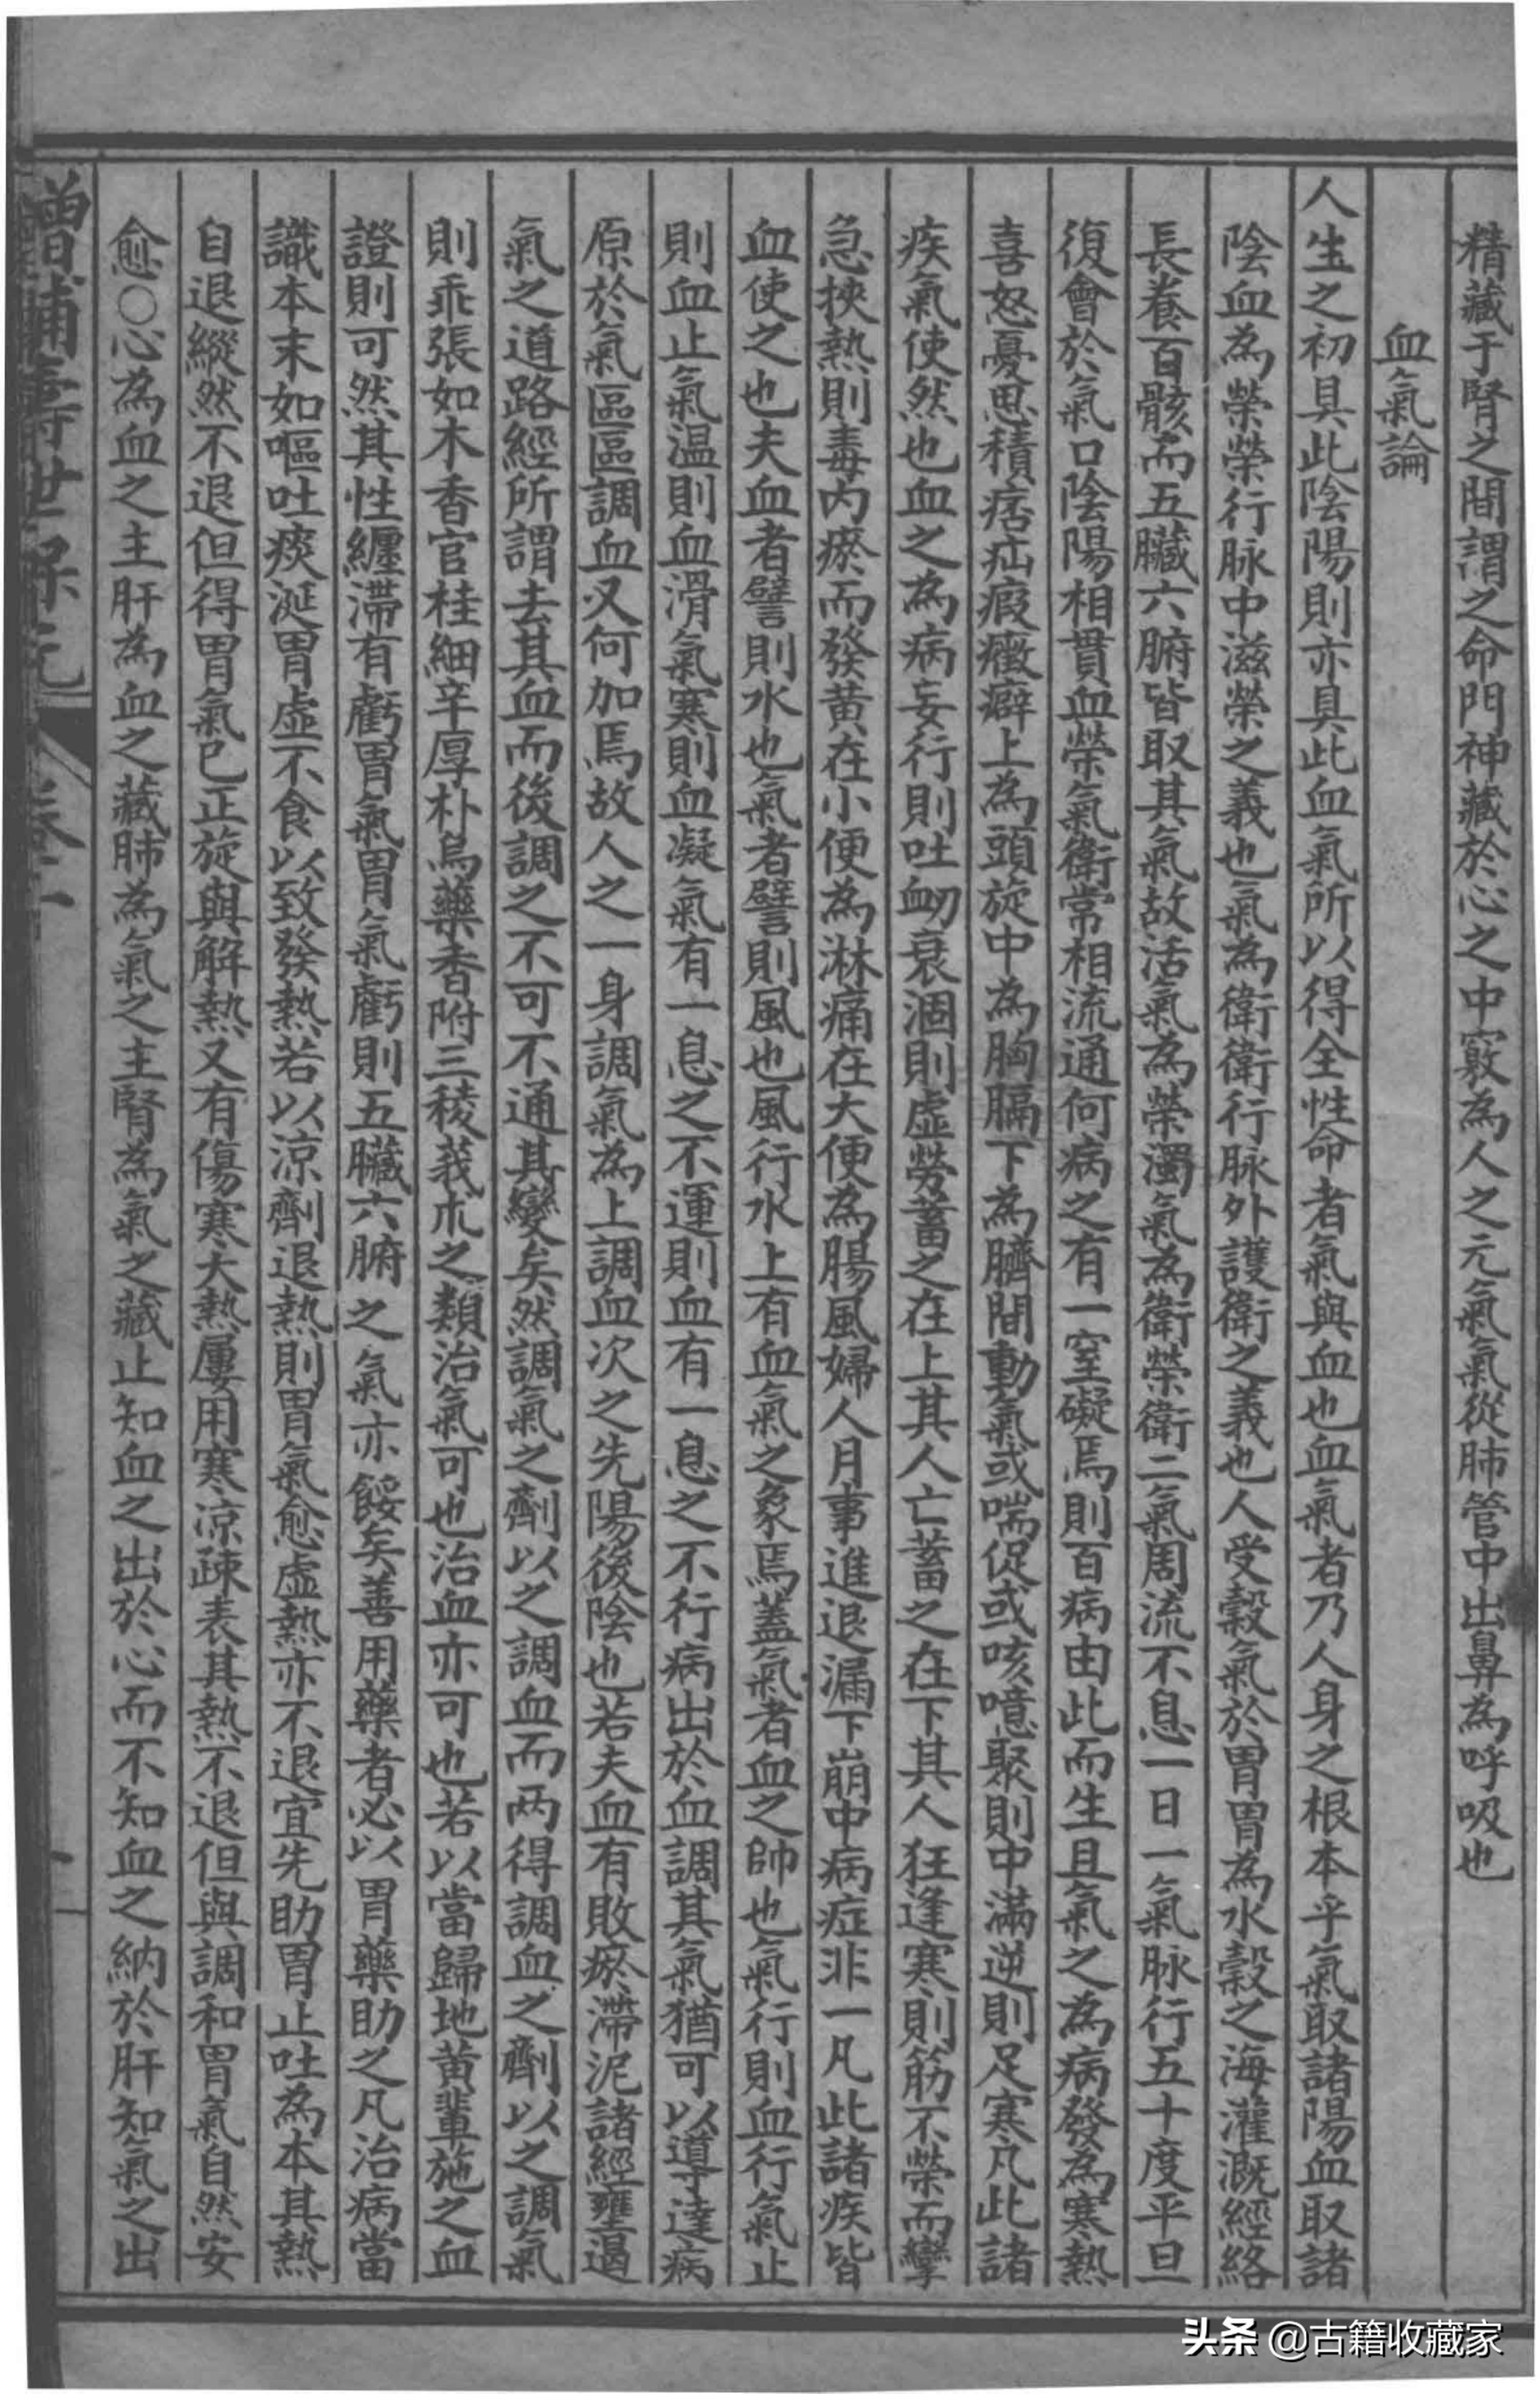 精藏于腎之間謂之命門神藏於心之中竅為人之元氣氣從肺管中出鼻為呼吸也
血氣論
人生之初具此陰陽則亦具此血氣所以得全性命者氣與血也血氣者乃人身之根本乎氣取諸陽血取諸
陰血為榮榮行脉中滋榮之義也氣為衛衛行脉外護衛之義也人受穀氣於胃胃為水穀之海灌溉經絡
長養百骸而五臟六腑皆取其氣故活氣為榮濁氣為衛榮衛二氣周流不息一日一氣脉行五十度平旦
復會於氣口陰陽相貫血榮氣衛常相流通何病之有一窒礙焉則百病由此而生且氣之為病發為寒熱
喜怒憂思積痞疝瘕癥癖上為頭旋中為胸膈下為臍間動氣或喘促或咳噫聚則中滿逆則足寒凡此諸
疾氣使然也血之為病妄行則吐衂衰涸則虛勞蓄之在上其人亡蓄之在下其人狂逢寒則筋不榮而攣
急挾熱則毒內瘀而發黃在小便為淋痛在大便為腸風婦人月事進退漏下崩中病症非一凡此諸疾皆
血使之也夫血者譬則水也氣者譬則風也風行水上有血氣之象焉蓋氣者血之帥也氣行則血行氣止
則血止氣温則血滑氣寒則血凝氣有一息之不運則血有一息之不行病出於血調其氣猶可以導達病
原於氣區區調血又何加焉故人之一身調氣為上調血次之先陽後陰也若夫血有敗瘀滯泥諸經壅遏
氣之道路經所謂去其血而後調之不可不通其變矣然調氣之劑以之調血而两得調血之劑以之調氣
則乖張如木香官桂細辛厚朴烏藥香附三稜莪朮之類治氣可也治血亦可也若以當歸地黃輩施之血
證則可然其性纏滯有虧胃氣胃氣虧則五臟六腑之氣亦餒矣善用藥者必以胃藥助之凡治病當
識本末如嘔吐痰涎胃虛不食以致發熱若以凉劑退熱則胃氣愈虛熱亦不退宜先助胃止吐為本其熱
自退縱然不退但得胃氣已正旋與解熱又有傷寒大熱屢用寒凉疎表其熱不退但與調和胃氣自然安
愈○心為血之主肝為血之藏肺為氣之主腎為氣之藏止知血之出於心而不知血之納於肝知氣之出
增補壽世保元 卷一
头条 @古籍收藏家